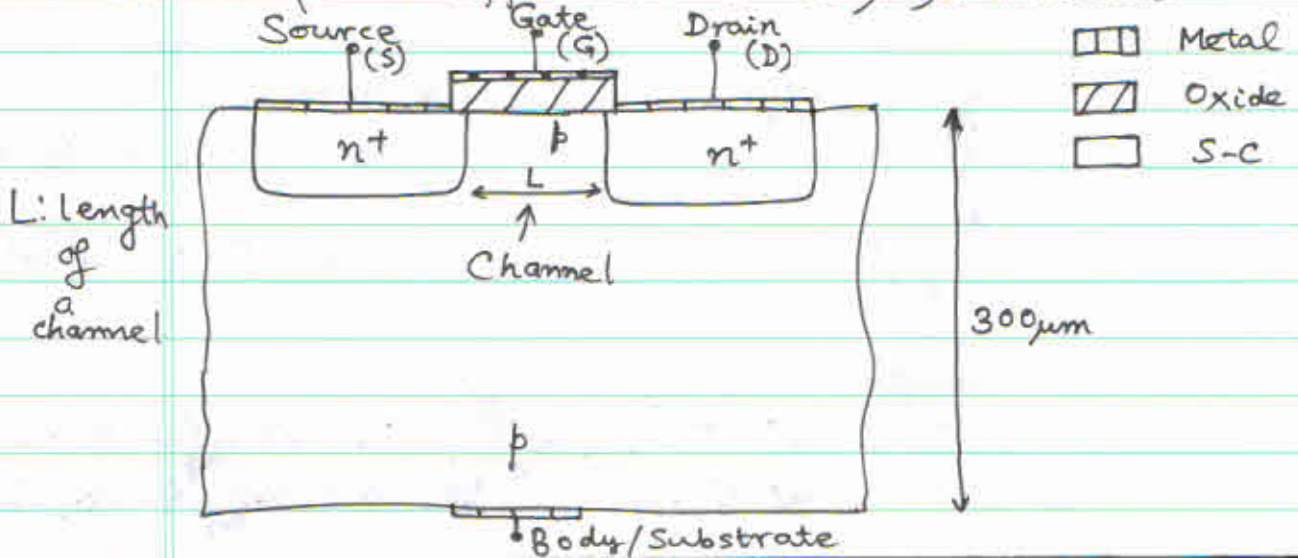 Source
(S)
Gate
(G)
Drain
(D)
Metal
Oxide
S-C
n+
p
n+
L
Channel
L: length
of
a
channel
300μm
p
Body/Substrate